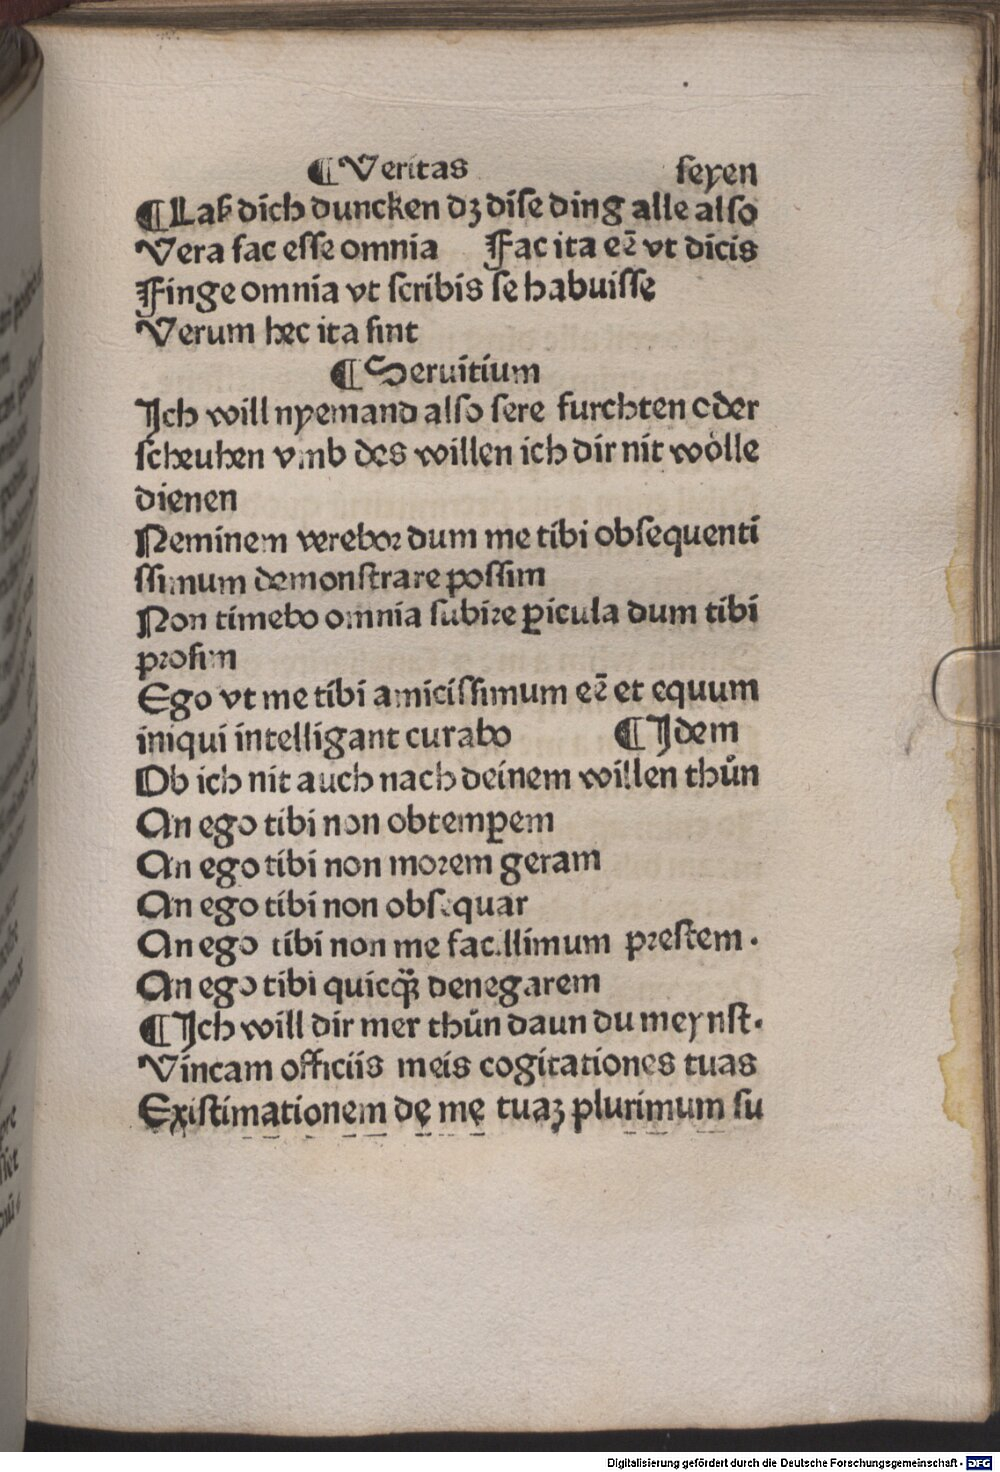 ¶ Veritas seyen
¶ Laß dich duncken dz dise ding alle also
Vera fac esse omnia Fac ita eē vt dicis
Finge omnia vt scribis se habuisse
Verum hec ita sint
¶ Seruitium
Ich will nyemand also sere furchten oder
scheuhen vmb des willen ich dir nit wòlle
dienen
Neminem verebor dum me tibi obsequenti
ssimum demonstrare possim
Non timebo omnia subire ꝑicula dum tibi
prosim
Ego vt me tibi amicissimum eē et equum
iniqui intelligant curabo ¶ Idem
Ob ich nit auch nach deinem willen thůn
An ego tibi non obtemꝑem
An ego tibi non morem geram
An ego tibi non obsequar
An ego tibi non me facillimum prestem.
An ego tibi quicq̈ denegarem
¶ Ich will dir mer thůn daun du meynst.
Vincam officiis meis cogitationes tuas
Existimationem dę mę tuaꝫ plurimum su
Digitalisierung gefördert durch die Deutsche Forschungsgemeinschaft - DFG